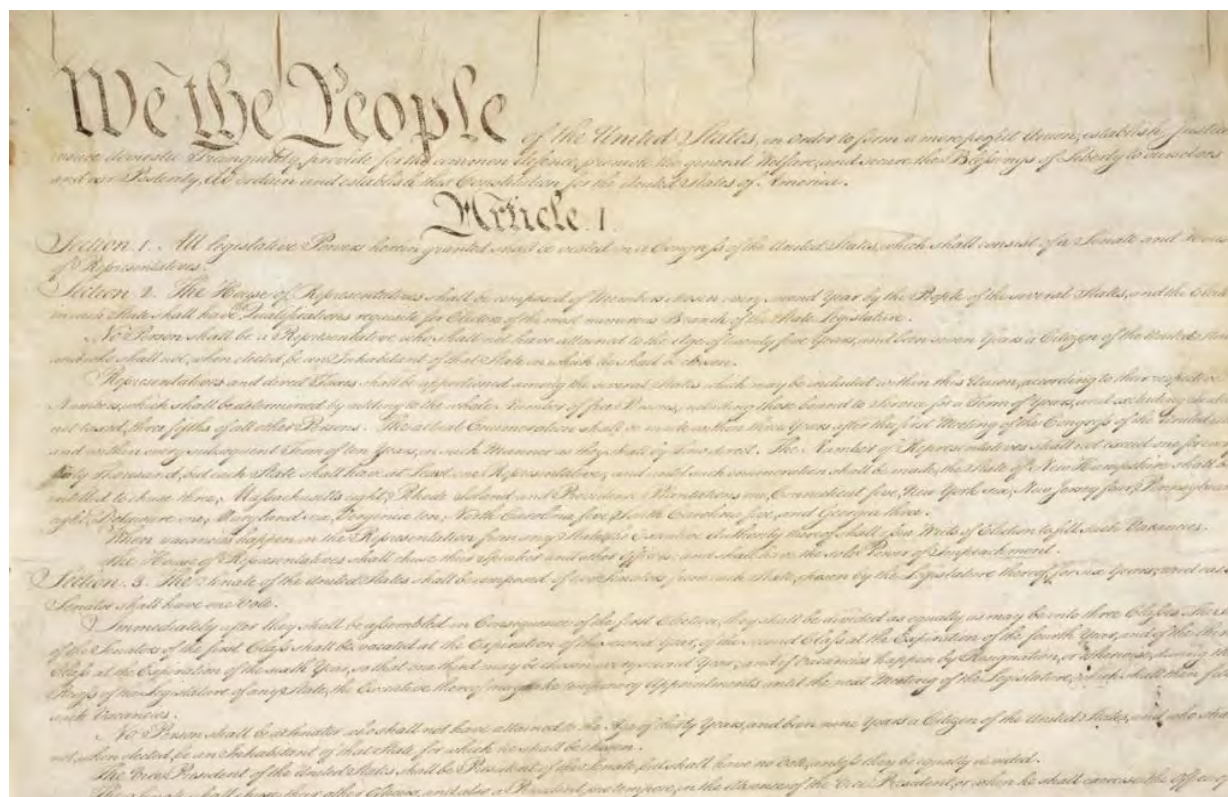 We the People of the United States, in Order to form a more perfect Union, establish Justice,
insure domestic Tranquility, provide for the common defence, promote the general Welfare, and secure the Blessings of Liberty to ourselves
and our Posterity, do ordain and establish this Constitution for the United States of America.
Article. I.
Section. 1. All legislative Powers herein granted shall be vested in a Congress of the United States, which shall consist of a Senate and House
of Representatives.
Section. 2. The House of Representatives shall be composed of Members chosen every second Year by the People of the several States, and the Electors
in each State shall have the Qualifications requisite for Electors of the most numerous Branch of the State Legislature.
No Person shall be a Representative who shall not have attained to the Age of twenty five Years, and been seven Years a Citizen of the United States,
and who shall not, when elected, be an Inhabitant of that State in which he shall be chosen.
Representatives and direct Taxes shall be apportioned among the several States which may be included within this Union, according to their respective
Numbers, which shall be determined by adding to the whole Number of free Persons, including those bound to Service for a Term of Years, and excluding Indians
not taxed, three fifths of all other Persons. The actual Enumeration shall be made within three Years after the first Meeting of the Congress of the United States,
and within every subsequent Term of ten Years, in such Manner as they shall by Law direct. The Number of Representatives shall not exceed one for every
thirty Thousand, but each State shall have at Least one Representative; and until such enumeration shall be made, the State of New Hampshire shall be
entitled to chuse three, Massachusetts eight, Rhode-Island and Providence Plantations one, Connecticut five, New-York six, New Jersey four, Pennsylvania
eight, Delaware one, Maryland six, Virginia ten, North Carolina five, South Carolina five, and Georgia three.
When vacancies happen in the Representation from any State, the Executive Authority thereof shall issue Writs of Election to fill such Vacancies.
The House of Representatives shall chuse their Speaker and other Officers; and shall have the sole Power of Impeachment.
Section. 3. The Senate of the United States shall be composed of two Senators from each State, chosen by the Legislature thereof, for six Years; and each
Senator shall have one Vote.
Immediately after they shall be assembled in Consequence of the first Election, they shall be divided as equally as may be into three Classes. The Seats
of the Senators of the first Class shall be vacated at the Expiration of the second Year, of the second Class at the Expiration of the fourth Year, and of the third
Class at the Expiration of the sixth Year, so that one third may be chosen every second Year; and if Vacancies happen by Resignation, or otherwise, during the
Recess of the Legislature of any State, the Executive thereof may make temporary Appointments until the next Meeting of the Legislature, which shall then fill
such Vacancies.
No Person shall be a Senator who shall not have attained to the Age of thirty Years, and been nine Years a Citizen of the United States, and who shall
not, when elected, be an Inhabitant of that State for which he shall be chosen.
The Vice President of the United States shall be President of the Senate, but shall have no Vote, unless they be equally divided.
The Senate shall chuse their other Officers, and also a President pro tempore, in the Absence of the Vice President, or when he shall exercise the Office of